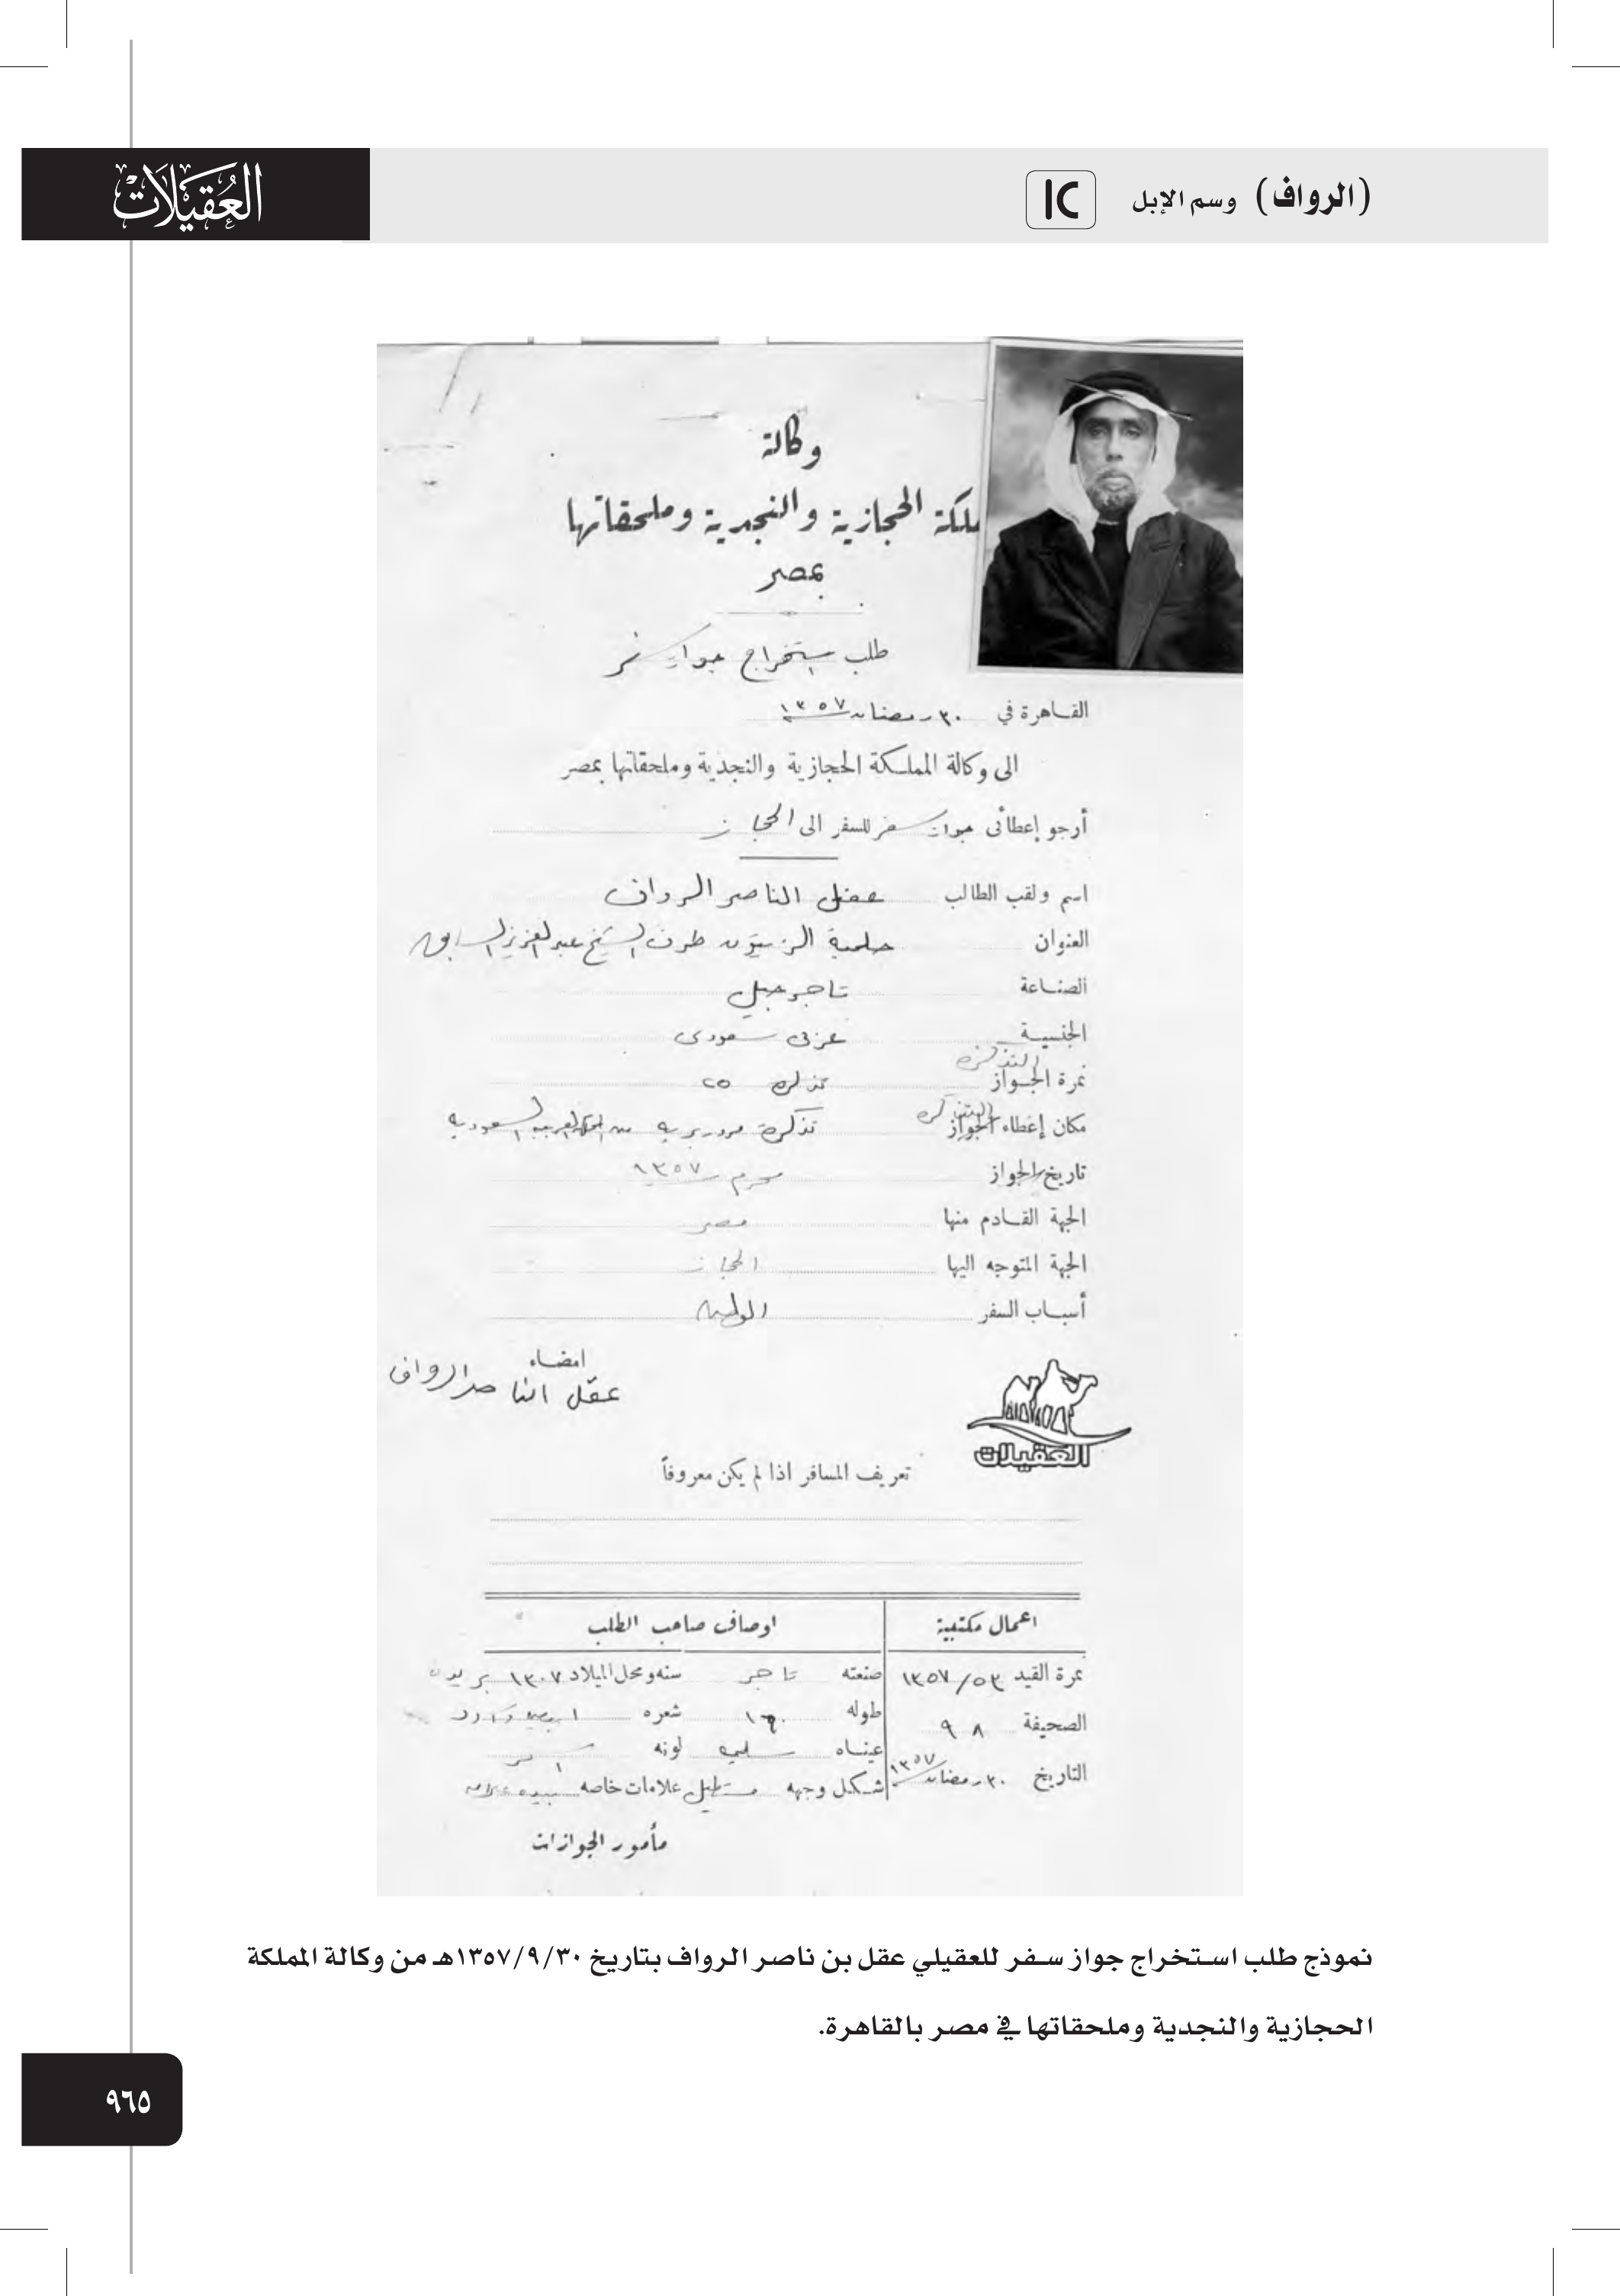 (الرواف) وسم الإبل
العقيلات
وكالة
ملكة الحجازية والنجدية وملحقاتها
بمصر
طلب استخراج جواز سفر
القاهرة في ٣٠ رمضان ١٣٥٧
الى وكالة المملكة الحجازية والنجدية وملحقاتها بمصر
أرجو إعطائى جواز سفر للسفر الى الحجاز
اسم ولقب الطالب عقل الناصر الرواف
العنوان حلمية الزيتون طرف الشيخ عبدالعزيز السابق
الصناعة تاجر
الجنسية عربي سعودي
التذكرة
نمرة الجواز تذكرة ٢٥
التذكرة
مكان إعطاء الجواز تذكرة مرورية من المملكة العربية السعودية
تاريخ الجواز محرم ١٣٥٧
الجهة القادم منها مصر
الجهة المتوجه اليها الحجاز
أسباب السفر الوطن
امضاء
عقل الناصر الرواف
العقيلات
تعريف المسافر اذا لم يكن معروفاً
اعمال مكتبية
اوصاف صاحب الطلب
نمرة القيد ٥٣/١٣٥٧ صنعته تاجر سنه ومحل الميلاد ١٣٠٧ بريده
الصحيفة ٩٨ طوله ١٦٠ شعره
عيناه لونه اسمر
التاريخ ٣٠ رمضان ١٣٥٧ شكل وجهه مستطيل علامات خاصه
مأمور الجوازات
نموذج طلب استخراج جواز سفر للعقيلي عقل بن ناصر الرواف بتاريخ ١٣٥٧/٩/٣٠هـ من وكالة المملكة
الحجازية والنجدية وملحقاتها في مصر بالقاهرة.
٩٦٥